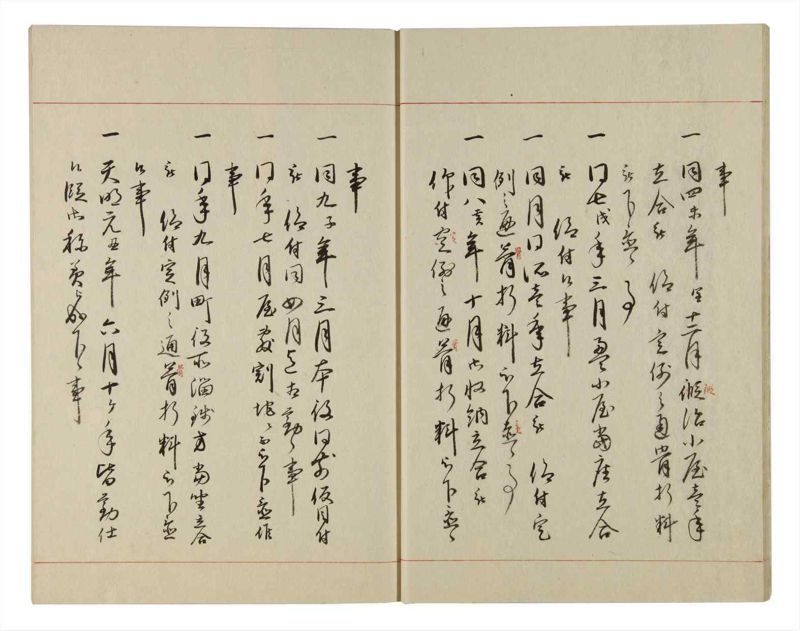 事
一 同四未年 十二月 小屋壱年
立合 被 仰付定例之通骨折料
被下置候事
一 同七戌年三月 小屋当座立合
被 仰付候事
一 同月同所壱年立合被 仰付定
例之通骨折料被下置候事
一 同八亥年十月御収納立合被
仰付定例之通骨折料被下置候
事
一 同九子年三月本役同前仮目付
被 仰付同四月 相勤候事
一 同年七月屋敷割 被下置候
事
一 同年九月町役所 方当坐立合
被 仰付定例之通骨折料被下置
候事
一 天明元丑年六月十ケ年皆勤仕
候段御称美 被下候事